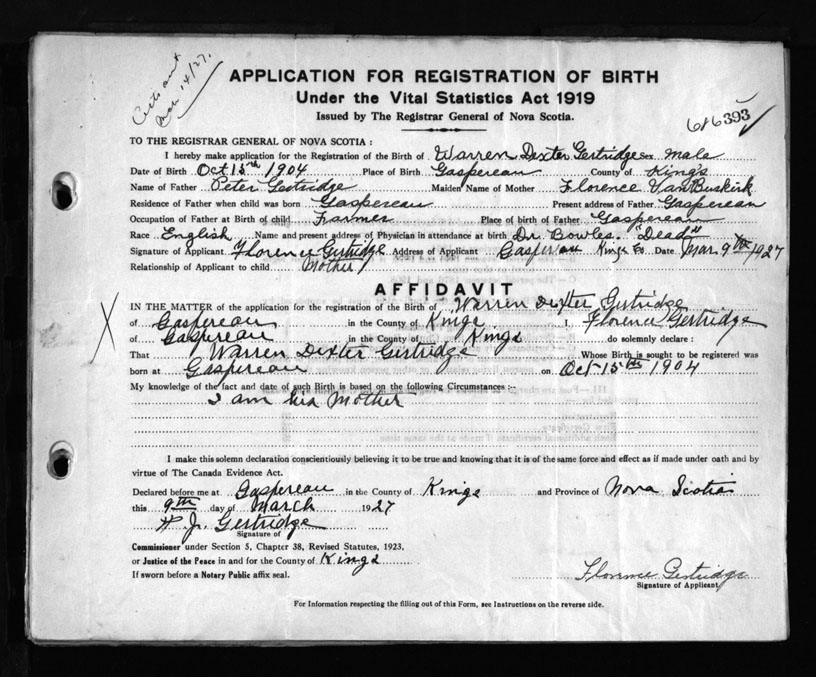 Mar 14/27.
APPLICATION FOR REGISTRATION OF BIRTH
Under the Vital Statistics Act 1919
Issued by The Registrar General of Nova Scotia.
616393
TO THE REGISTRAR GENERAL OF NOVA SCOTIA :
I hereby make application for the Registration of the Birth of Warren Dexter Gertridge sex male
Date of Birth Oct 15th 1904 Place of Birth Gaspereau County of King's
Name of Father Peter Gertridge Maiden Name of Mother Florence VanBuskirk
Residence of Father when child was born Gaspereau Present address of Father Gaspereau
Occupation of Father at Birth of child Farmer Place of birth of Father Gaspereau
Race English Name and present address of Physician in attendance at birth Dr. Bowles. "Dead"
Signature of Applicant Florence Gertridge Address of Applicant Gaspereau Kings Co Date Mar. 9th 1927
Relationship of Applicant to child Mother
AFFIDAVIT
IN THE MATTER of the application for the registration of the Birth of Warren Dexter Gertridge
of Gaspereau in the County of Kings I, Florence Gertridge
of Gaspereau in the County of Kings do solemnly declare :
That Warren Dexter Gertridge Whose Birth is sought to be registered was
born at Gaspereau on Oct 15th 1904
My knowledge of the fact and date of such Birth is based on the following Circumstances :-
I am his Mother
I make this solemn declaration conscientiously believing it to be true and knowing that it is of the same force and effect as if made under oath and by
virtue of The Canada Evidence Act.
Declared before me at Gaspereau in the County of Kings and Province of Nova Scotia
this 9th day of March 1927
H. J. Gertridge
Signature of
Commissioner under Section 5, Chapter 38, Revised Statutes, 1923,
or Justice of the Peace in and for the County of Kings
If sworn before a Notary Public affix seal.
Florence Gertridge
Signature of Applicant
For Information respecting the filling out of this Form, see Instructions on the reverse side.